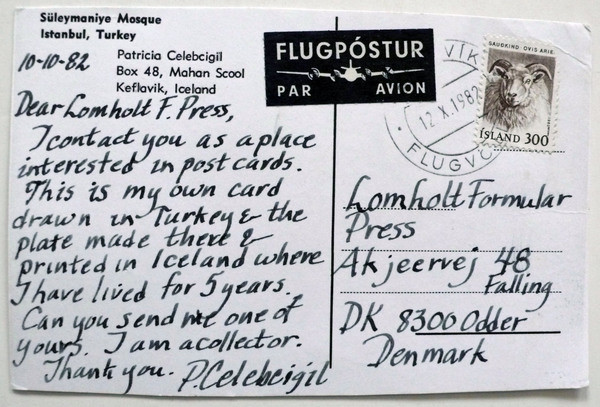 Süleymaniye Mosque
Istanbul, Turkey
10-10-82
Patricia Celebcigil
Box 48, Mahan Scool
Keflavik, Iceland
Dear Lomholt F. Press,
I contact you as a place
interested in post cards.
This is my own card
drawn in Turkey & the
plate made there &
printed in Iceland where
I have lived for 5 years.
Can you send me one of
yours. I am a collector.
Thank you. P. Celebcigil
FLUGPÓSTUR
PAR AVION
VÍK
12.X.1982
FLUGVÖ
SAUÐKIND · OVIS ARIES
ÍSLAND 300
Lomholt Formular
Press
Akjeervej 48
Falling
DK 8300 Odder
Denmark